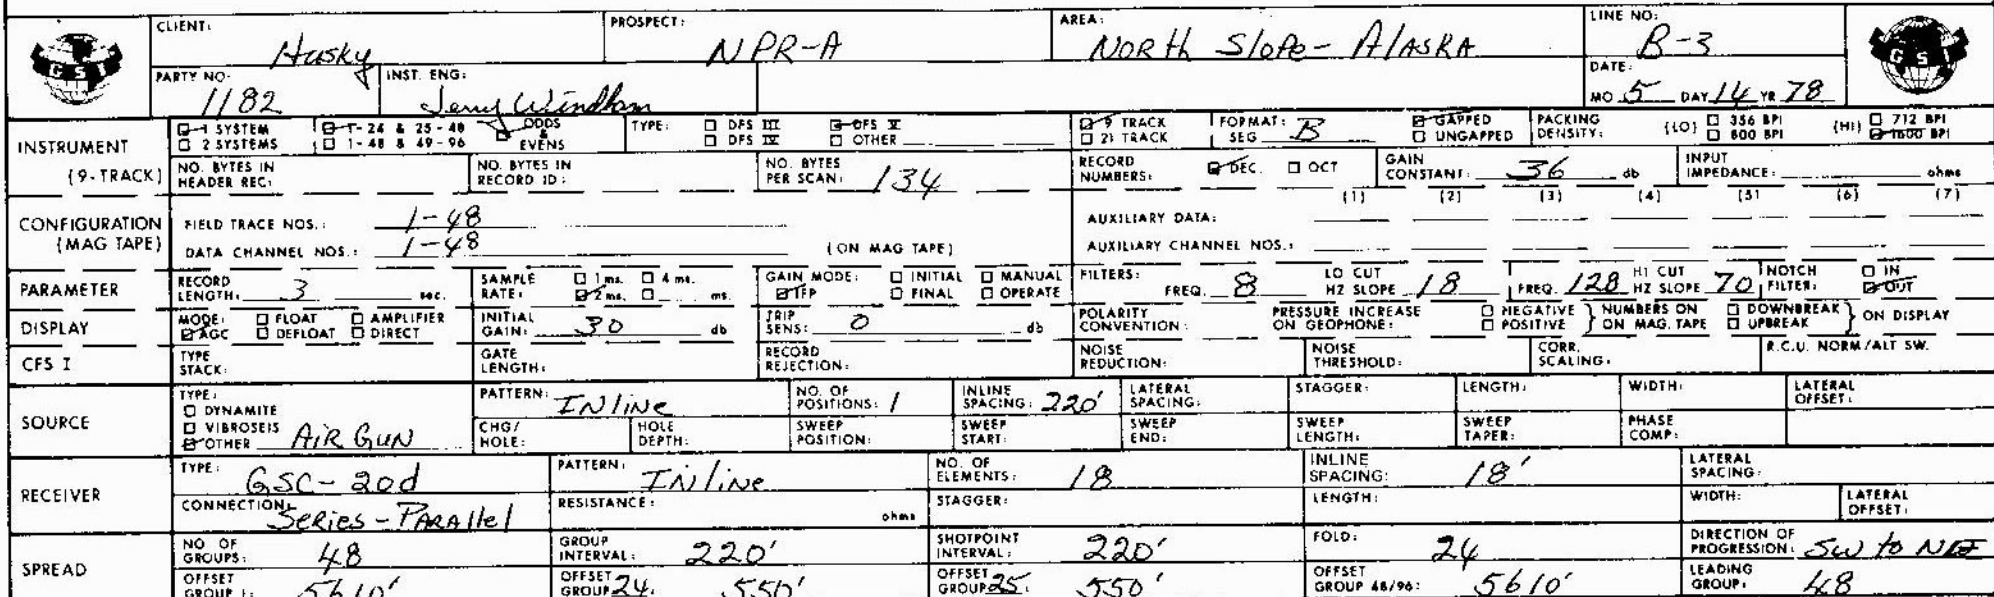 CLIENT: Husky PROSPECT: NPR-A AREA: NORth SloPe- AlASKA LINE NO: B-3
GSI GSI
PARTY NO. 1182 INST. ENG: Jerry Windham DATE: MO. 5 DAY 14 YR 78
INSTRUMENT (9-TRACK) 1 SYSTEM 1-24 & 25-48 ODDS & EVENS TYPE: DFS III DFS V 9 TRACK FORMAT: SEG B GAPPED PACKING DENSITY: (LO) 356 BPI (HI) 712 BPI
2 SYSTEMS 1-48 & 49-96 DFS IV OTHER 21 TRACK UNGAPPED 800 BPI 1600 BPI
NO. BYTES IN HEADER REC: NO. BYTES IN RECORD ID: NO. BYTES PER SCAN: 134 RECORD NUMBERS: DEC. OCT GAIN CONSTANT: 36 db INPUT IMPEDANCE: ohms
(1) (2) (3) (4) (5) (6) (7)
CONFIGURATION (MAG TAPE) FIELD TRACE NOS.: 1-48 AUXILIARY DATA:
DATA CHANNEL NOS.: 1-48 (ON MAG TAPE) AUXILIARY CHANNEL NOS.:
PARAMETER RECORD LENGTH: 3 sec. SAMPLE RATE: 1 ms. 4 ms. 2 ms. ms. GAIN MODE: INITIAL MANUAL IFP FINAL OPERATE FILTERS: FREQ. 8 LO CUT HZ SLOPE 18 FREQ. 128 HI CUT HZ SLOPE 70 NOTCH FILTER: IN OUT
DISPLAY MODE: FLOAT AMPLIFIER AGC DEFLOAT DIRECT INITIAL GAIN: 30 db TRIP SENS: 0 db POLARITY CONVENTION: PRESSURE INCREASE ON GEOPHONE: NEGATIVE POSITIVE NUMBERS ON MAG. TAPE DOWNBREAK UPBREAK ON DISPLAY
CFS I TYPE STACK: GATE LENGTH: RECORD REJECTION: NOISE REDUCTION: NOISE THRESHOLD: CORR. SCALING: R.C.U. NORM/ALT SW.
SOURCE TYPE: DYNAMITE VIBROSEIS OTHER AiR GUN PATTERN: INliNe NO. OF POSITIONS: 1 INLINE SPACING: 220' LATERAL SPACING: STAGGER: LENGTH: WIDTH: LATERAL OFFSET:
CHG/HOLE: HOLE DEPTH: SWEEP POSITION: SWEEP START: SWEEP END: SWEEP LENGTH: SWEEP TAPER: PHASE COMP:
RECEIVER TYPE: GSC-20d PATTERN: INliNe NO. OF ELEMENTS: 18 INLINE SPACING: 18' LATERAL SPACING:
CONNECTION: SeRies-PARAllel RESISTANCE: ohms STAGGER: LENGTH: WIDTH: LATERAL OFFSET:
SPREAD NO. OF GROUPS: 48 GROUP INTERVAL: 220' SHOTPOINT INTERVAL: 220' FOLD: 24 DIRECTION OF PROGRESSION: SW to NE
OFFSET GROUP 1: 5610' OFFSET GROUP 24: 550' OFFSET GROUP 25: 550' OFFSET GROUP 48/96: 5610' LEADING GROUP: 48